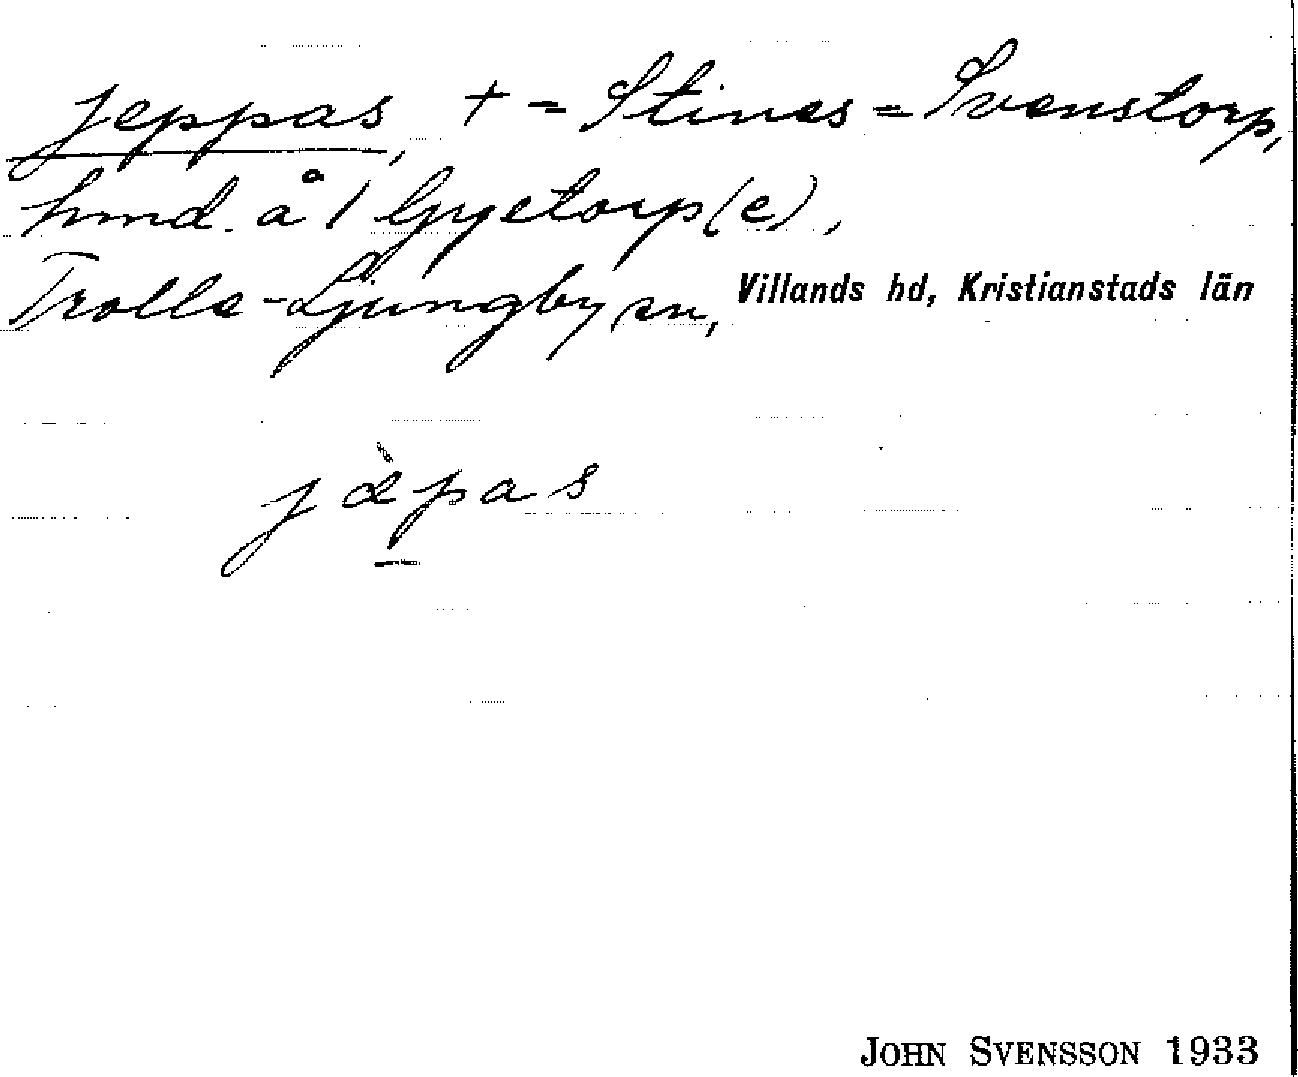 Jeppas, + = Stines = Svenstorp,
hmd. å 1 Gyetorp (e),
Trolle-Ljungby sn, Villands hd, Kristianstads län
jàpas
JOHN SVENSSON 1933